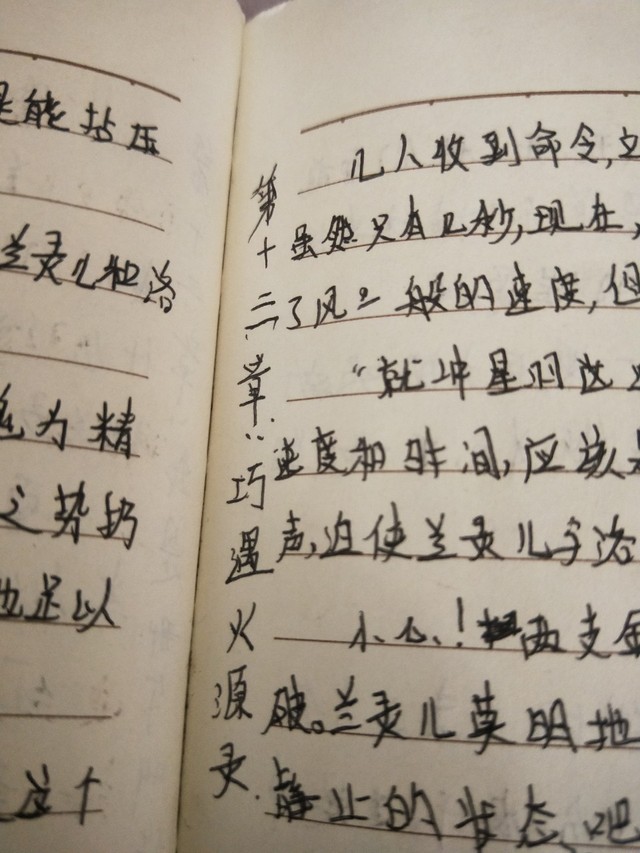 是能拈压
兰灵儿和洛
色为精
之势扔
也足以
这个
第十二章：巧遇火源灵.
几人收到命令,立
虽然只有几秒,现在,
了风一般的速度,但
“就冲星羽这
速度和时间,应该是
声,迫使兰灵儿与洛
小心！两支金
破。兰灵儿莫明地
静止的状态,吧